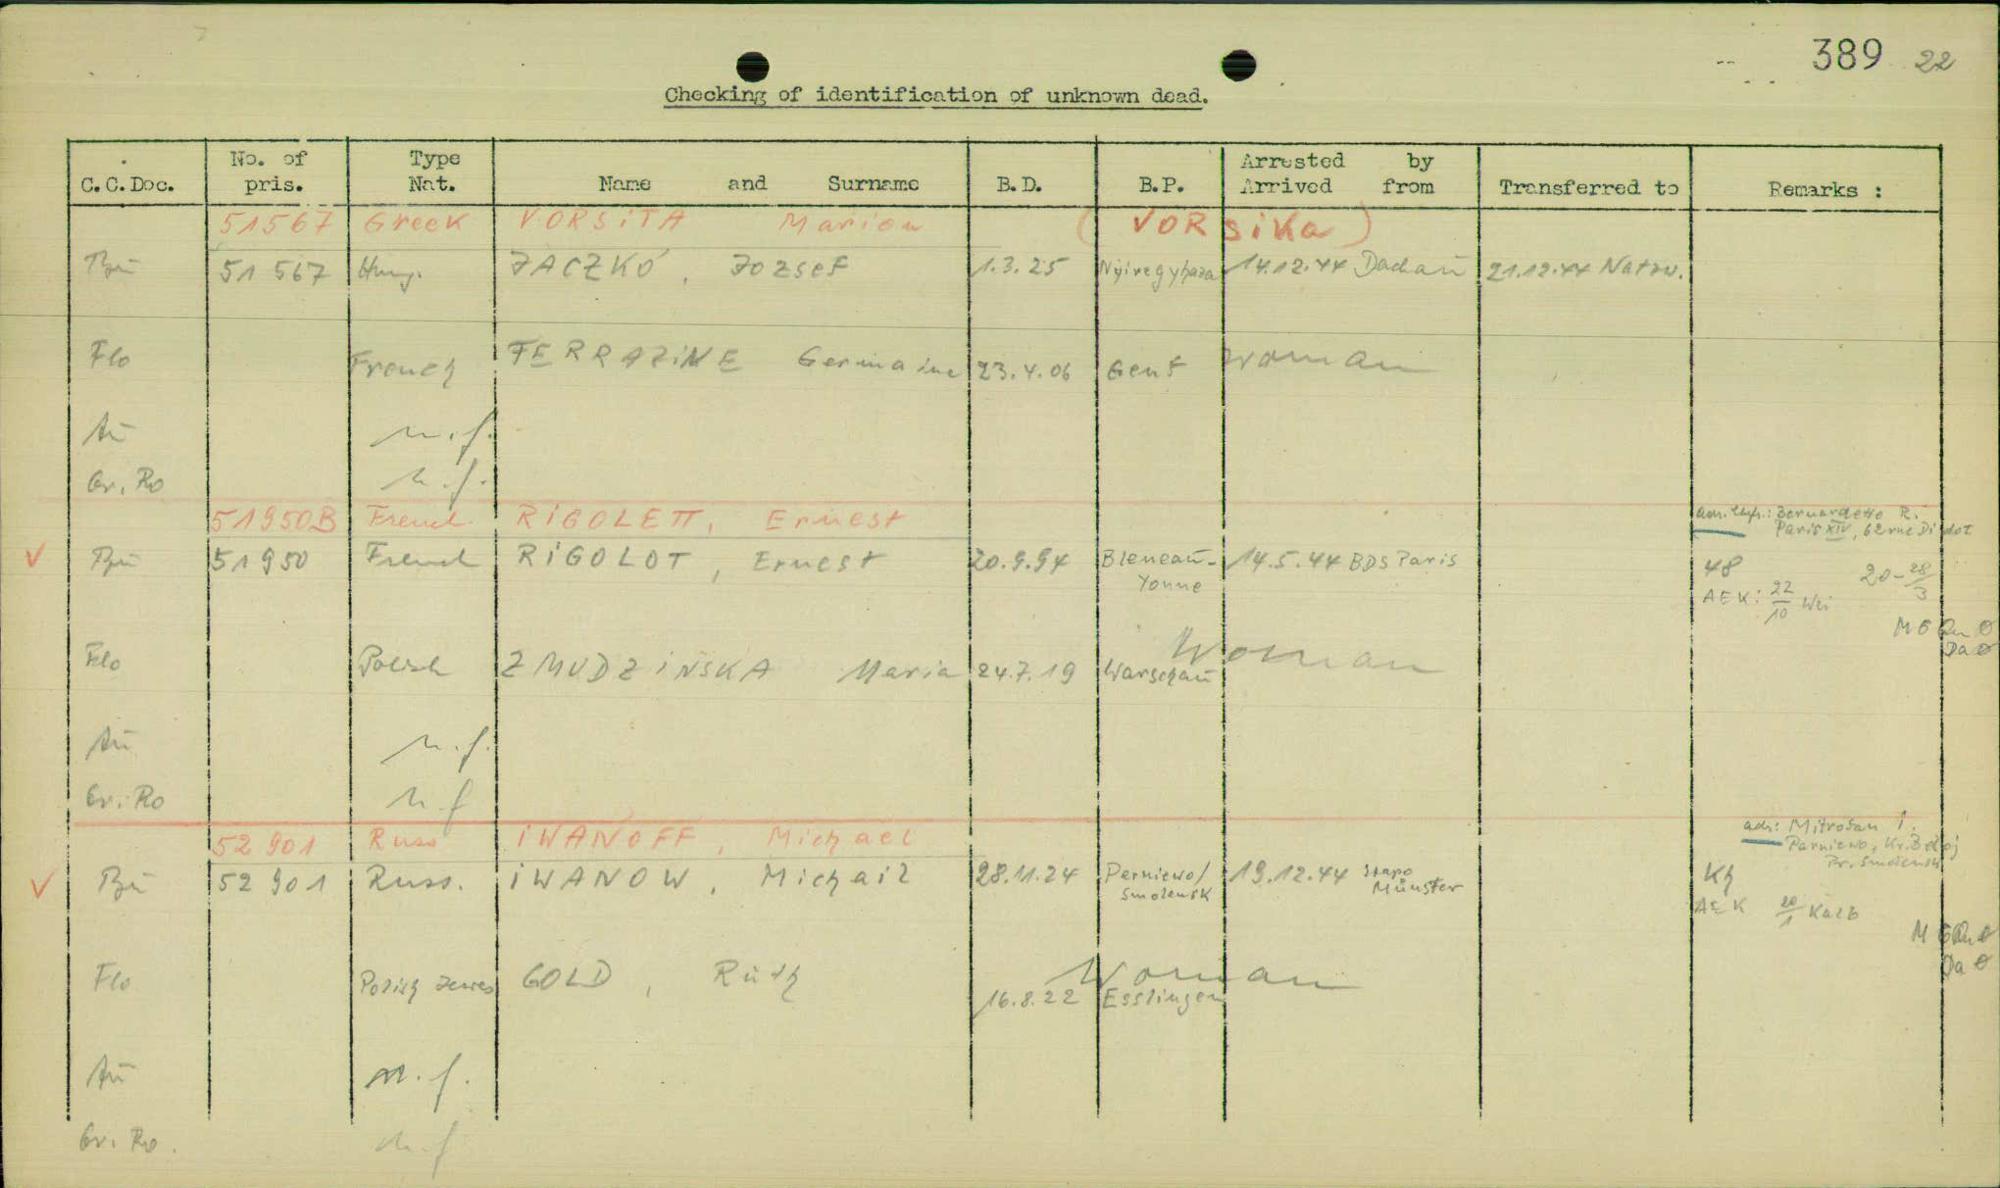 389 22
Checking of identification of unknown dead.
C.C.Doc. No. of pris. Type Nat. Name and Surname B.D. B.P. Arrested by Arrived from Transferred to Remarks :
51567 Greek VORSiTA Marion ( VORSiKa )
Bu 51567 Hung. JACZKÓ, Jozsef 1.3.25 Nyiregyhaza 14.12.44 Dachau 21.12.44 Natzw.
Flo French FERRAZiNE Germaine 23.4.06 Genf woman
Au n.f.
Gr. Ro n.f.
51950B French RiGOLETT, Ernest Bernardette R.
Paris XIV, 62 rue Didot
Bu 51950 French RiGOLOT, Ernest 20.9.94 Bleneau- 14.5.44 BDS Paris 48 20-28/3
Yonne AEK: 22/10 Wei
Flo Polish ZMUDZiNSKA Maria 24.7.19 Warschau Woman
Au n.f.
Gr. Ro n.f
52901 Russ iWANOFF, Michael adr: Mitrofan I.
Bu 52901 Russ. iWANOW, Michail 28.11.24 Perniewo/ 19.12.44 Stapo Kh
Smolensk Münster
AEK 20/1 Kalb
Flo Polish Jewes GOLD, Ruth 16.8.22 Esslingen Woman
Au n.f.
Gr. Ro. n.f